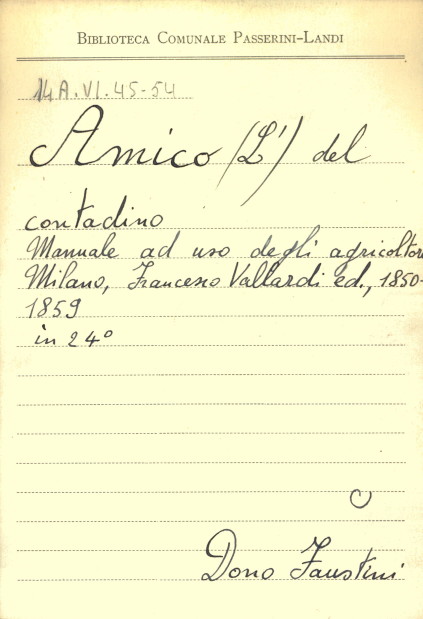 BIBLIOTECA COMUNALE PASSERINI-LANDI
14A.VI.45-54
Amico (L') del
contadino
Manuale ad uso degli agricoltori
Milano, Francesco Vallardi ed., 1850-
1859
in 24°
Dono Faustini